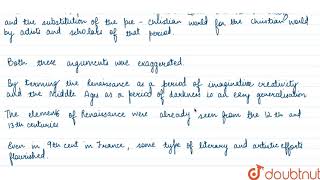 and the substitution of the pre-christian world for the christian world
by adults and scholars of that period.
Both these arguments were exaggerated.
By terming the renaissance as a period of imaginative creativity
and the Middle Ages as a period of darkness is an easy generalisation
The elements of Renaissance were already seen from the 12 th and
13th centuries
Even in 9th cent in France, some type of literary and artistic efforts
flourished.
doubtnut